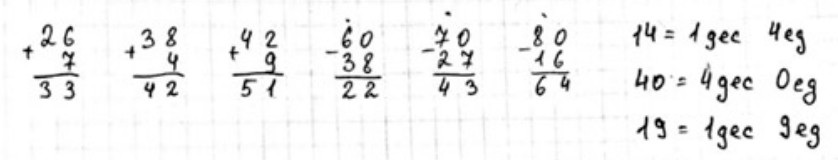 +26
7
33
+38
4
42
+42
9
51
-60
38
22
-70
27
43
-80
16
64
14 = 1 дес 4 ед
40 = 4 дес 0 ед
19 = 1 дес 9 ед